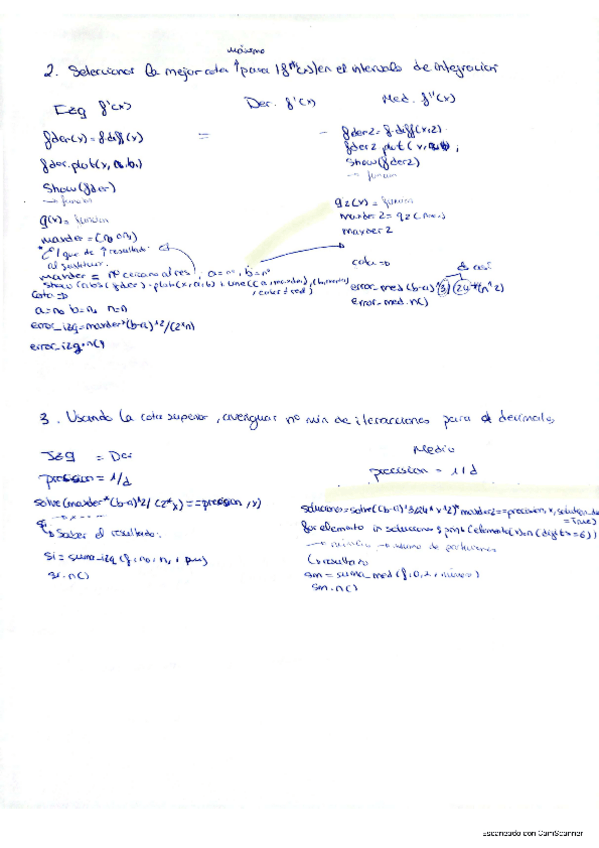 máximo
2. Seleccionar la mejor cota ↑ para |f (x)| en el intervalo de integracion
Izq f'(x)
Der. f'(x)
Med. f''(x)
fder(x) = f.diff(x)
=
fder.plot(x, a, b)
show(fder)
→ funcion
g(x) = funcion
maxder =
al sustituir.
maxder = nº cercano al res
cota ⇒
a = nº b = nº, n = n
error_izq = maxder*(b-a)^2/(2*n)
error_izq.n()
- fder2 = f.diff(x,2)
fder2.plot(x, a, b);
show(fder2)
→ funcion
g2(x) = funcion
maxder2 = g2(
maxder2
cota ⇒
error_med (b-a)^3/(24*(n^2)
error_med.n()
3. Usando la cota superior, averiguar nº min de iteracciones para d decimales
Izq = Der
precision = 1/d
solve(maxder*(b-a)^2/(2*x) == precision, x)
↳ Saber el resultado.
si = suma_izq (f, no, n,
si.n()
Medio
precision = 1/d
soluciones = solve((b-a)^3/24*x^2)*maxder2 == precision, x, solution_
= True)
for elemento in soluciones: print(elemento.rhs().n(digits=6))
→ numero de particiones
↳ resultado
sm = suma_med (f, 0, 2,
sm.n()
Escaneado con CamScanner